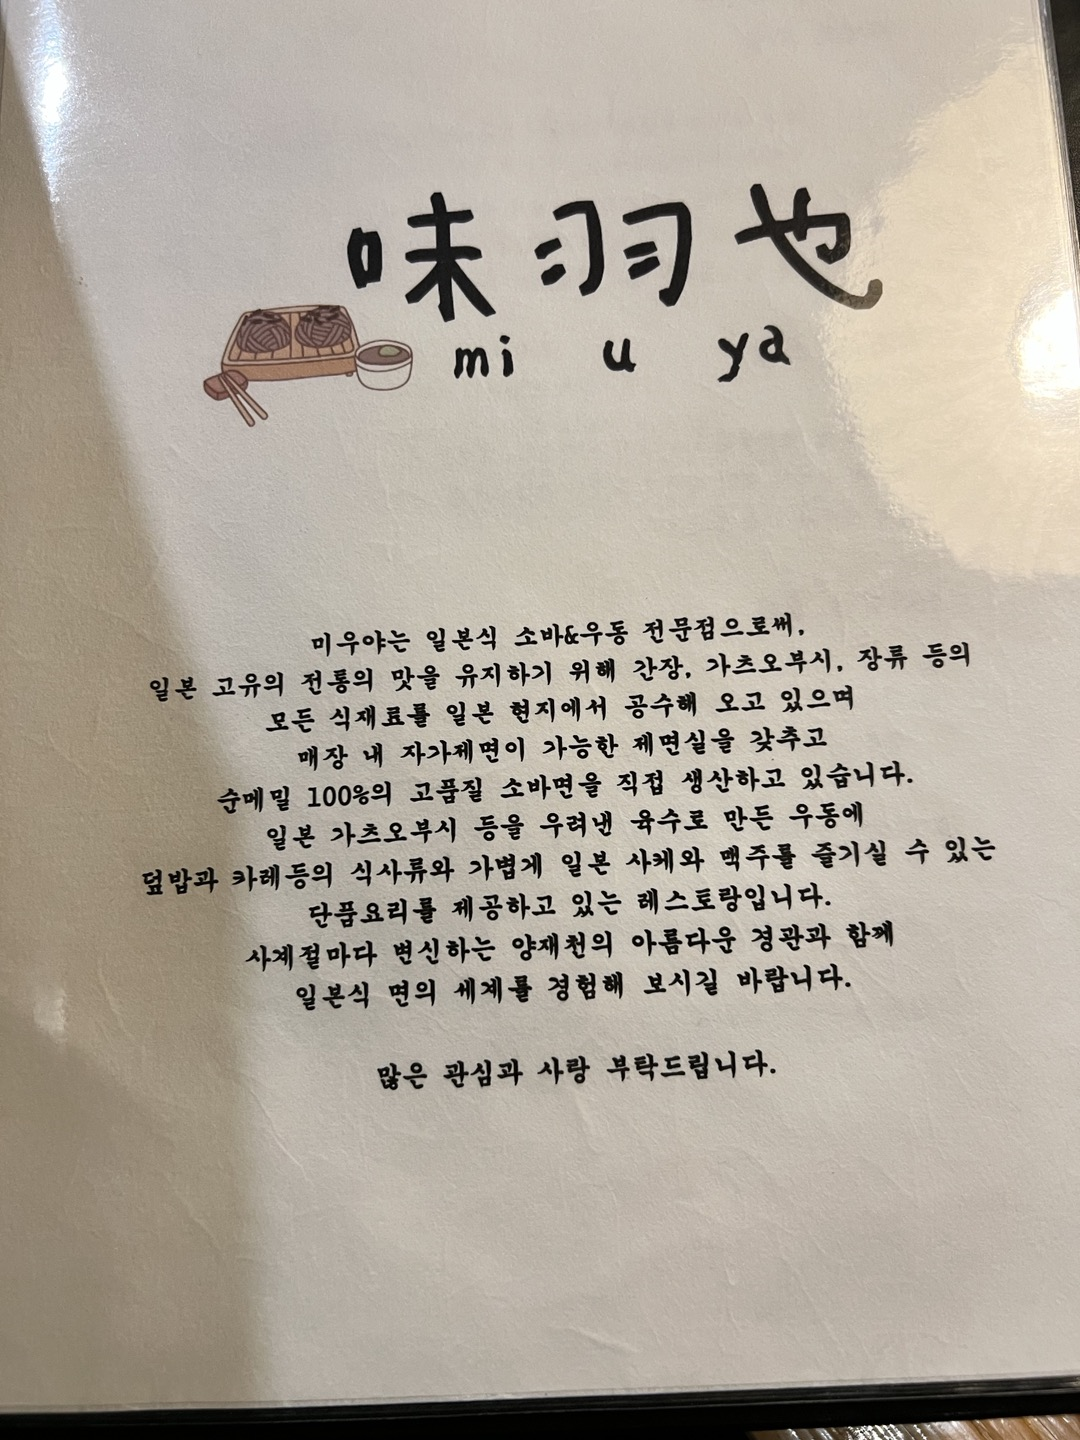 味羽也
mi u ya
미우야는 일본식 소바&우동 전문점으로써,
일본 고유의 전통의 맛을 유지하기 위해 간장, 가츠오부시, 장류 등의
모든 식재료를 일본 현지에서 공수해 오고 있으며
매장 내 자가제면이 가능한 제면실을 갖추고
순메밀 100%의 고품질 소바면을 직접 생산하고 있습니다.
일본 가츠오부시 등을 우려낸 육수로 만든 우동에
덮밥과 카레등의 식사류와 가볍게 일본 사케와 맥주를 즐기실 수 있는
단품요리를 제공하고 있는 레스토랑입니다.
사계절마다 변신하는 양재천의 아름다운 경관과 함께
일본식 면의 세계를 경험해 보시길 바랍니다.
많은 관심과 사랑 부탁드립니다.